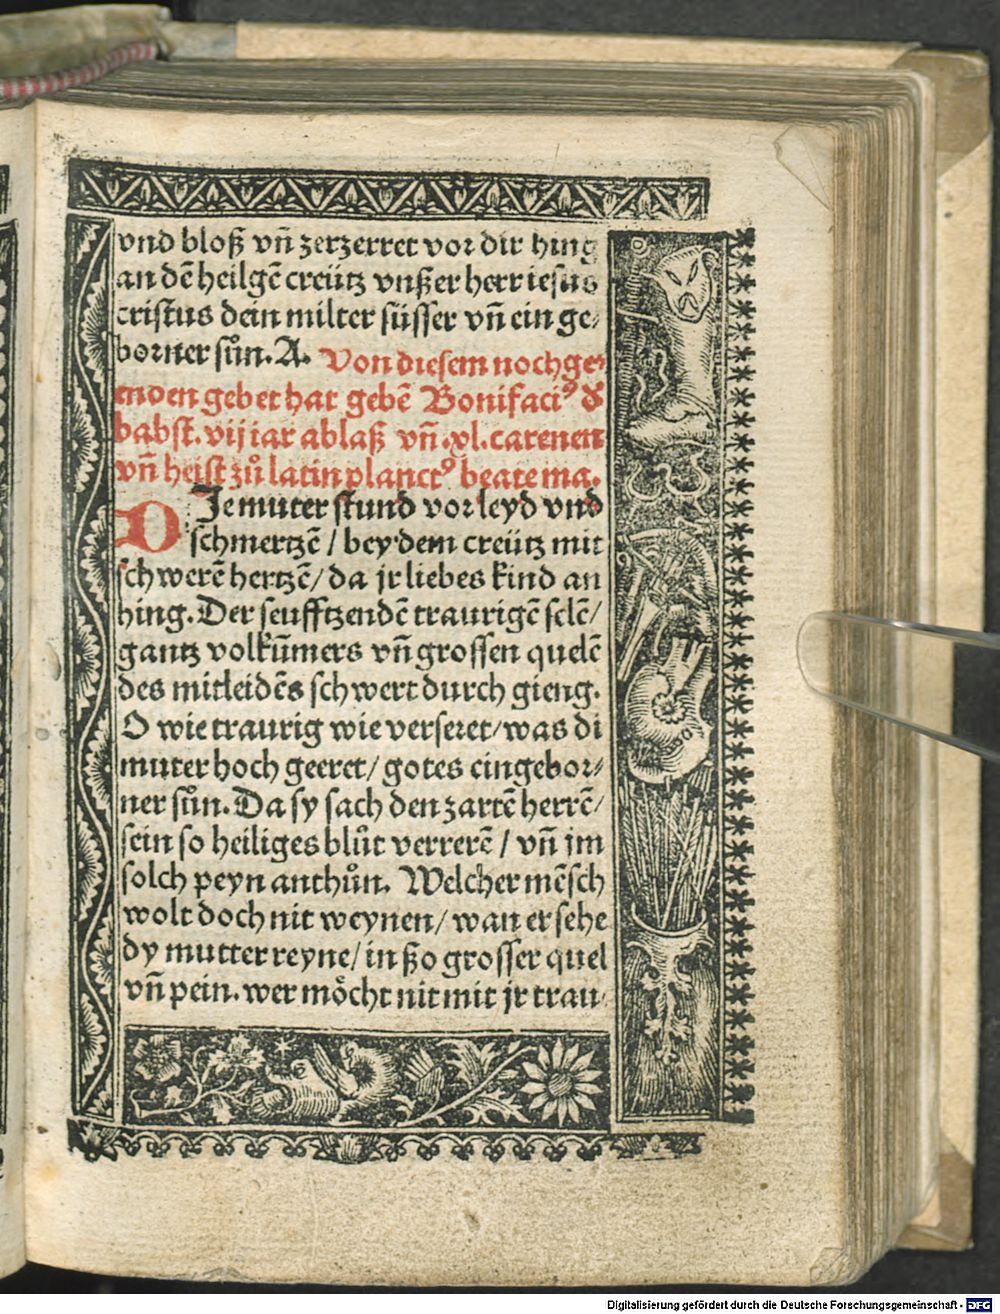 vnd bloß vn̄ zerzerret vor dir hing
an dē heilgē creütz vnßer herr iesus
cristus dein milter süsser vn̄ ein ge⸗
borner sůn. A. Von diesem nochge⸗
enden gebet hat gebē Bonifaciꝰ ď
babst. vij iar ablaß vn̄ .xl. carenen
vn̄ heist zů latin planctꝰ beate ma.
DJe muter stund vor leyd vnd
schmertzē / bey dem creütz mit
schwerē hertzē / da jr liebes kind an
hing. Der seufftzendē traurigē selē /
gantz volkūmers vn̄ grossen quelē
des mitleidēs schwert durch gieng.
O wie traurig wie verseret / was di
muter hoch geeret / gotes eingebor⸗
ner sůn. Da sy sach den zartē herrē /
sein so heiliges blůt verrerē / vn̄ jm
solch peyn anthůn. Welcher mēsch
wolt doch nit weynen / wan er sehe
dy mutter reyne / in ßo grosser quel
vn̄ pein. wer möcht nit mit jr trau⸗
Digitalisierung gefördert durch die Deutsche Forschungsgemeinschaft - DFG